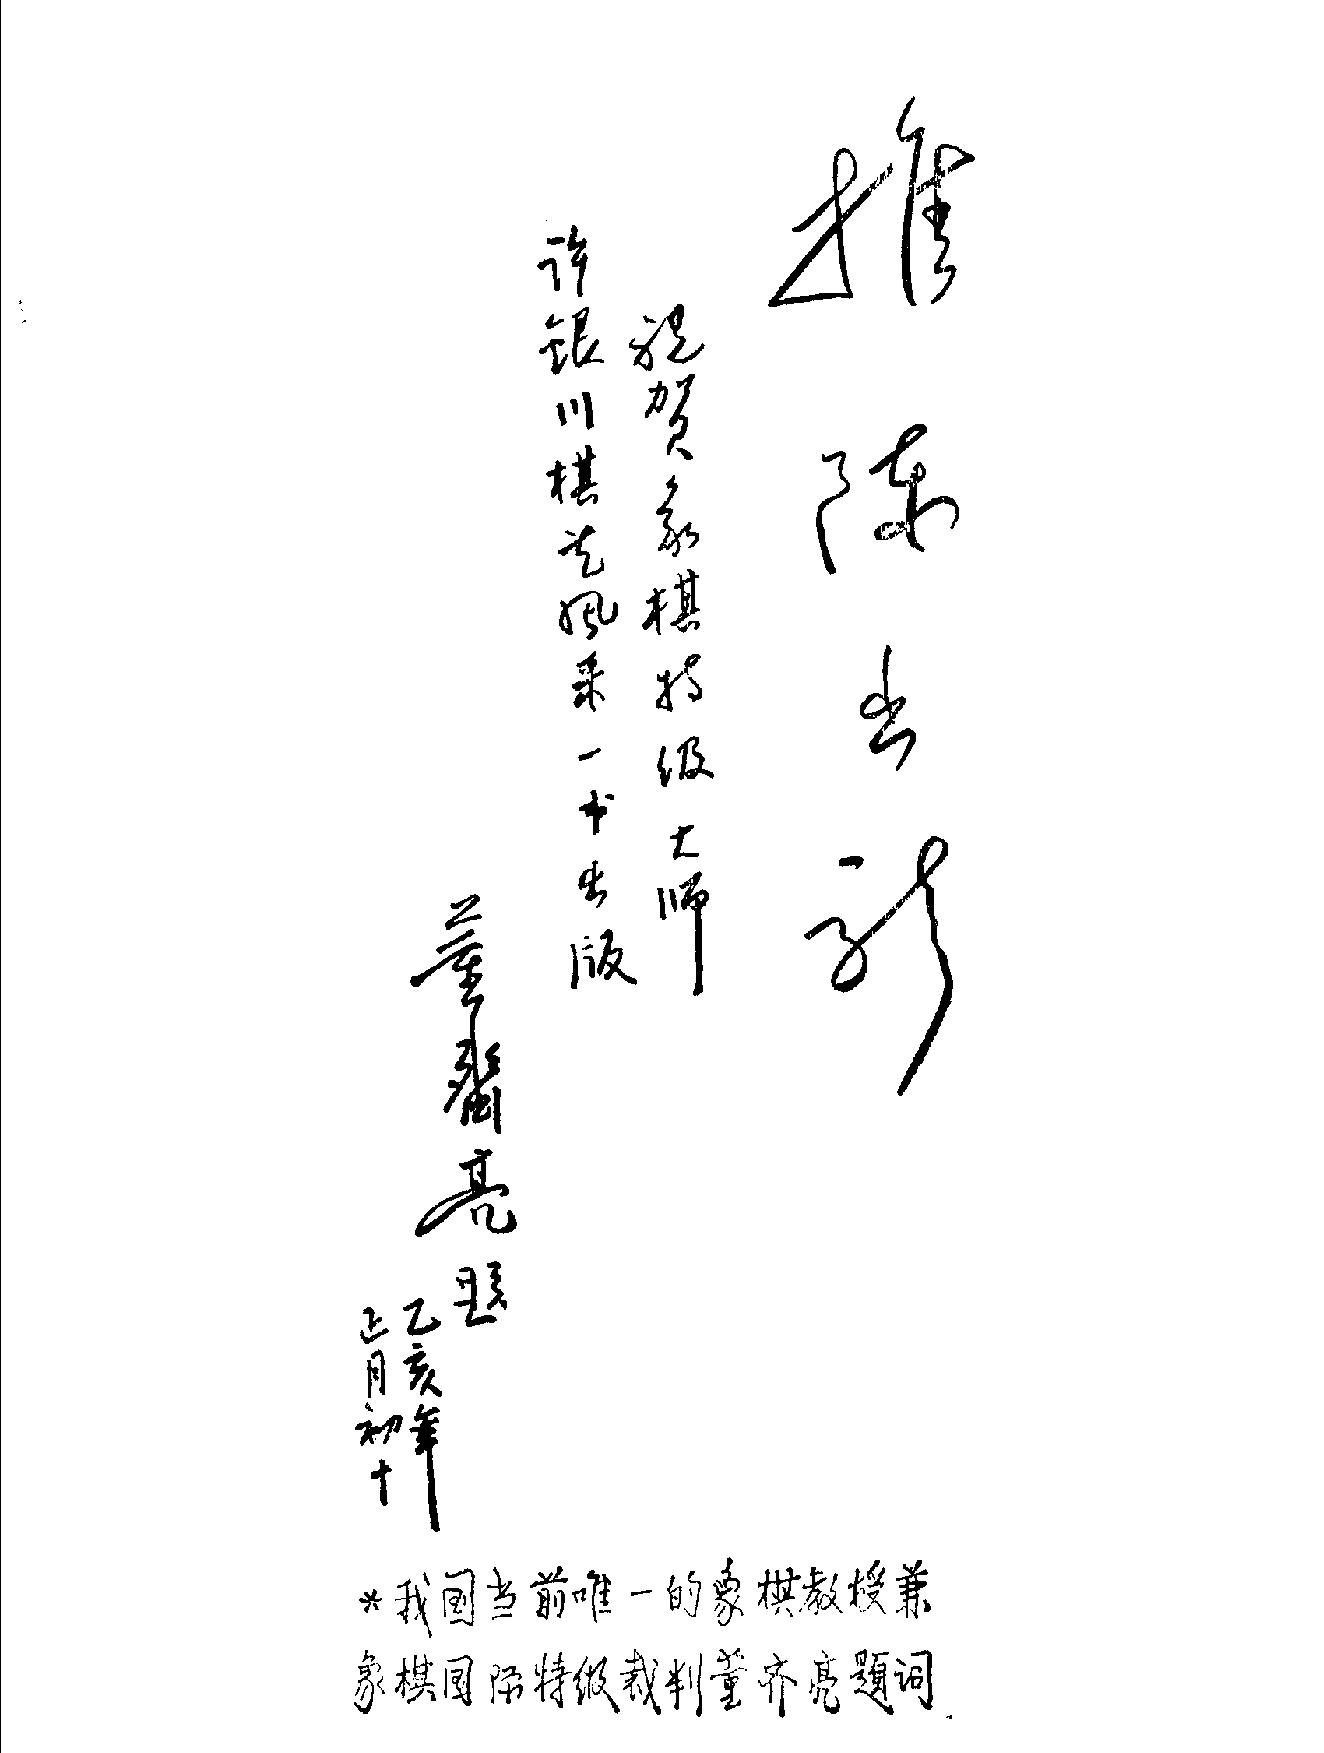 推陈出新
祝贺象棋特级大师
许银川棋艺风采一书出版
董齋亮题
乙亥年
正月初十
*我国当前唯一的象棋教授兼
象棋国际特级裁判董齐亮题词